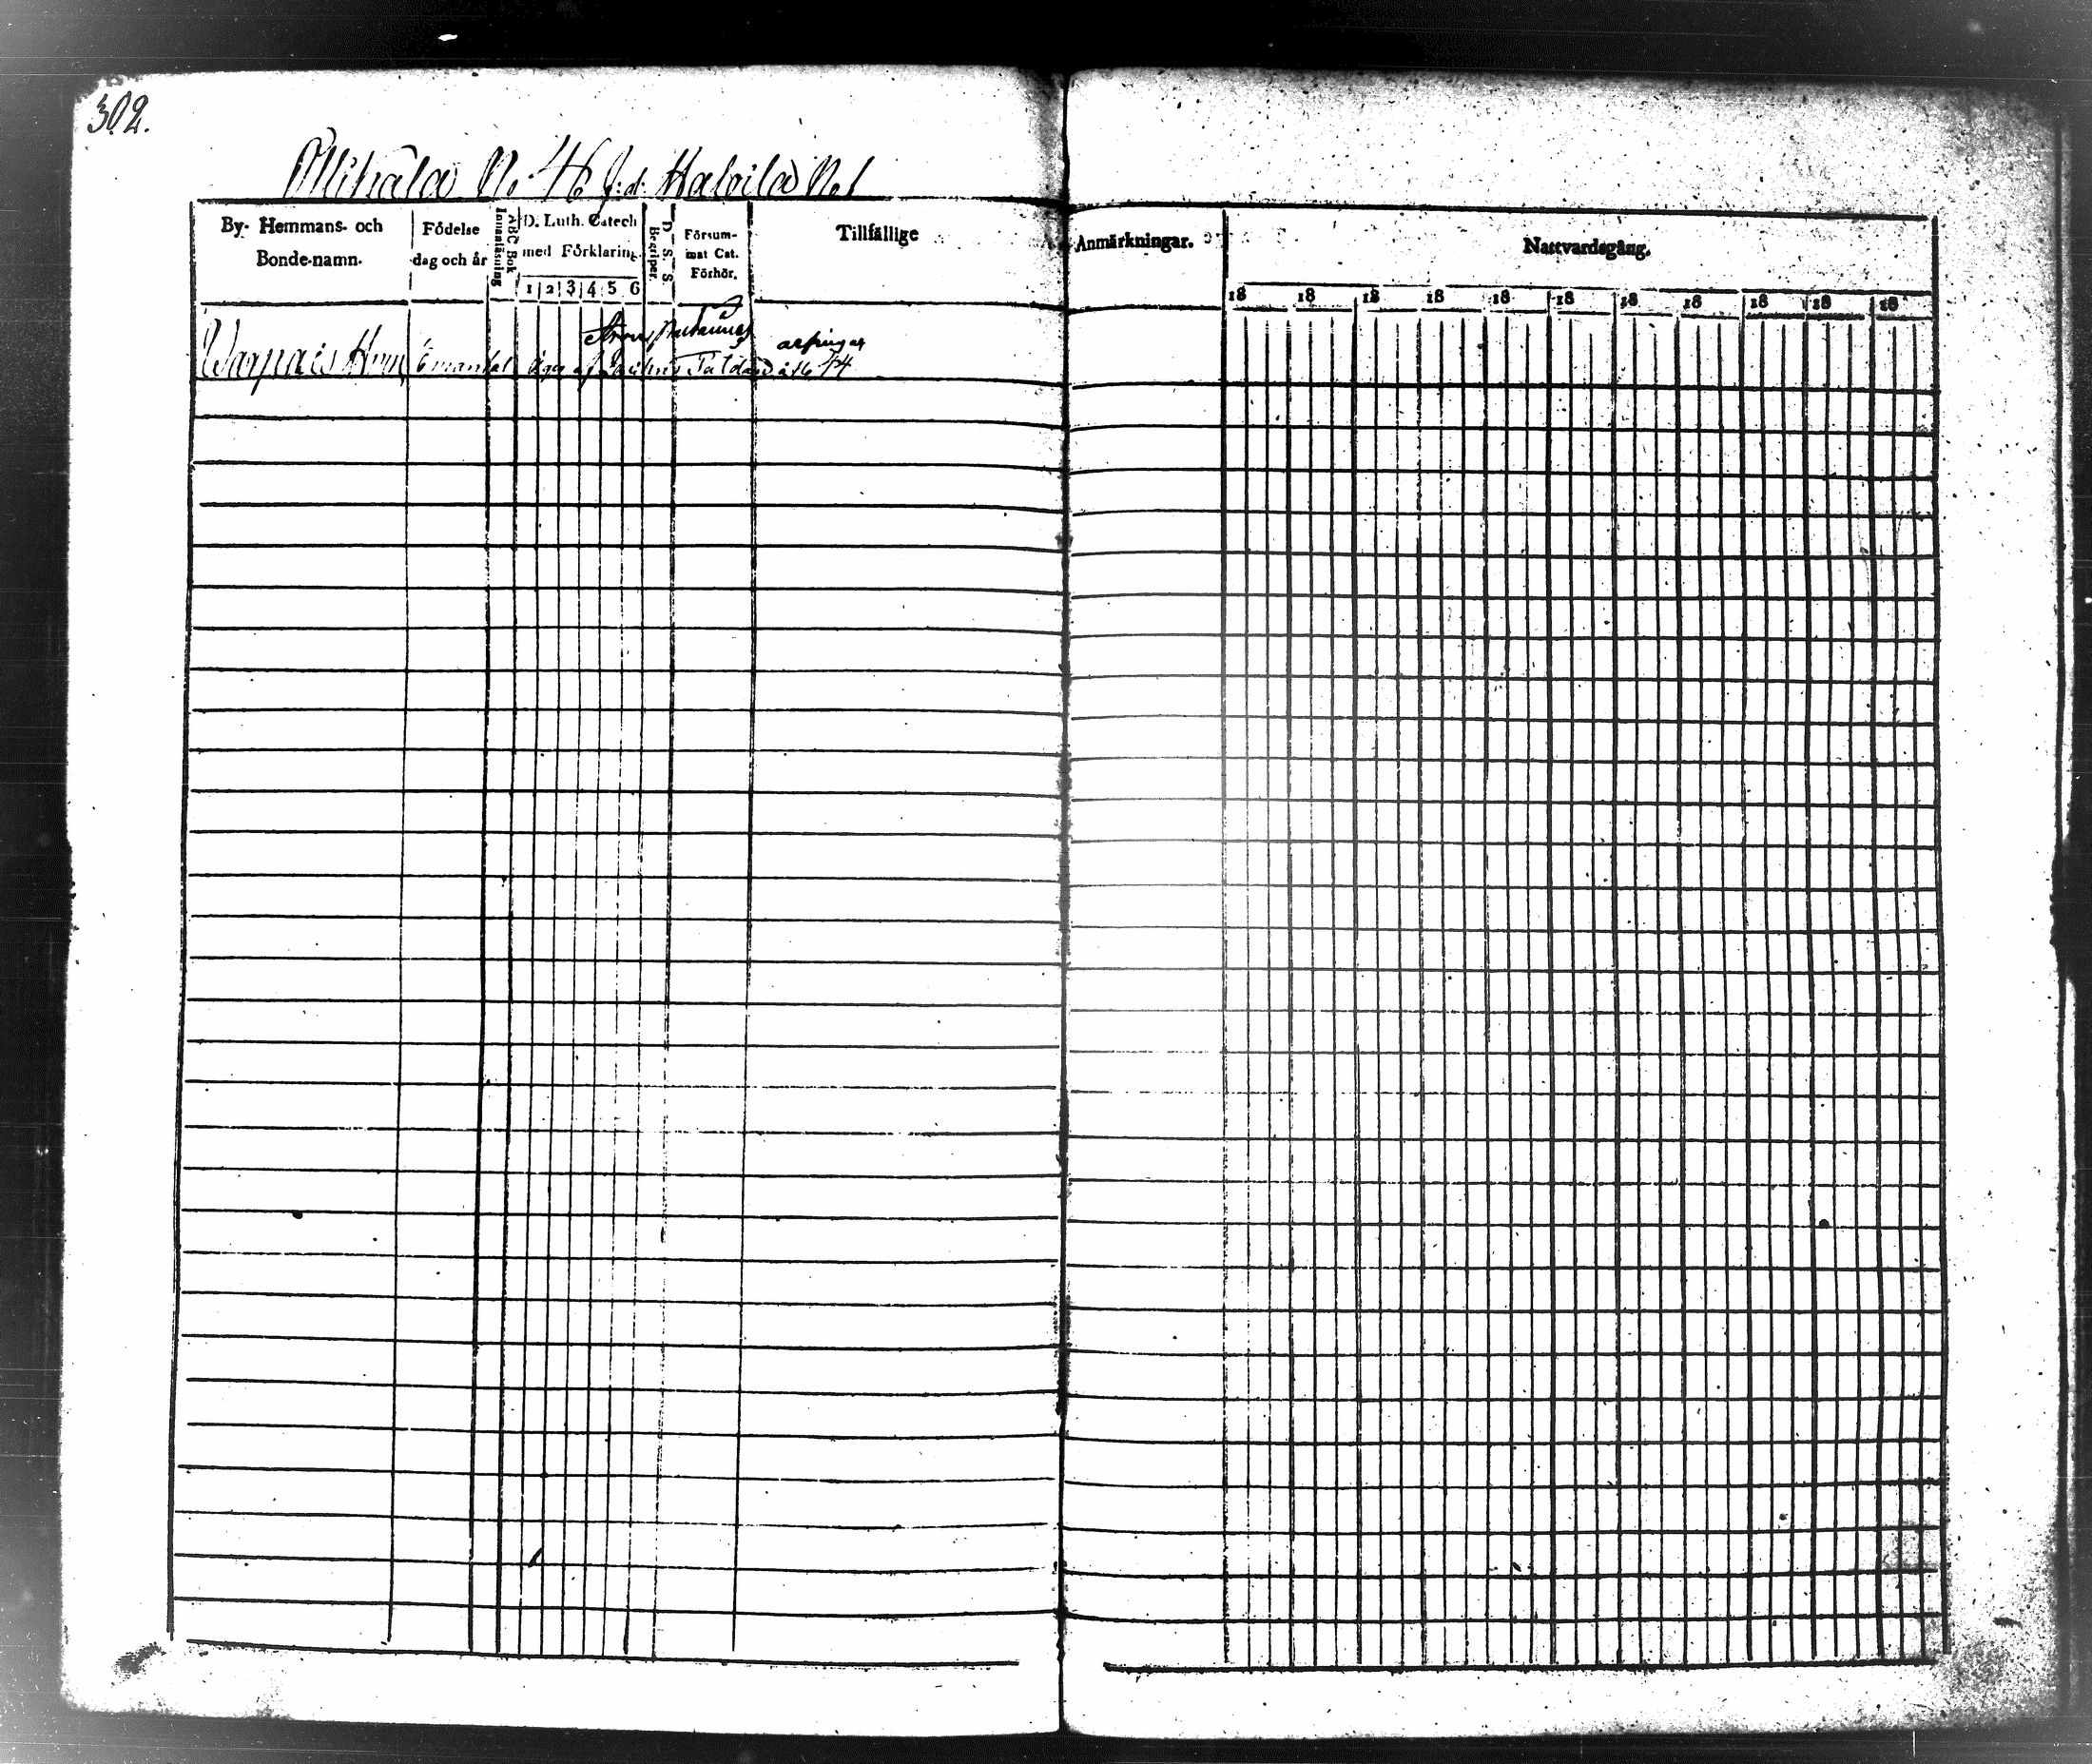 302.
Ollikala No 46 f:d: Hakila No 1
By- Hemmans- och Bonde-namn.
Födelse dag och år
Innanläsning
ABC Bok
D. Luth. Catech med Förklaring.
1 2 3 4 5 6
D. S. S. Begriper.
Försummat Cat. Förhör.
Tillfällige
Anmärkningar.
Nattvardsgång.
18 18 18 18 18 18 18 18 18 18 18
arfvingar
Warpais Hem mantal äges af 44